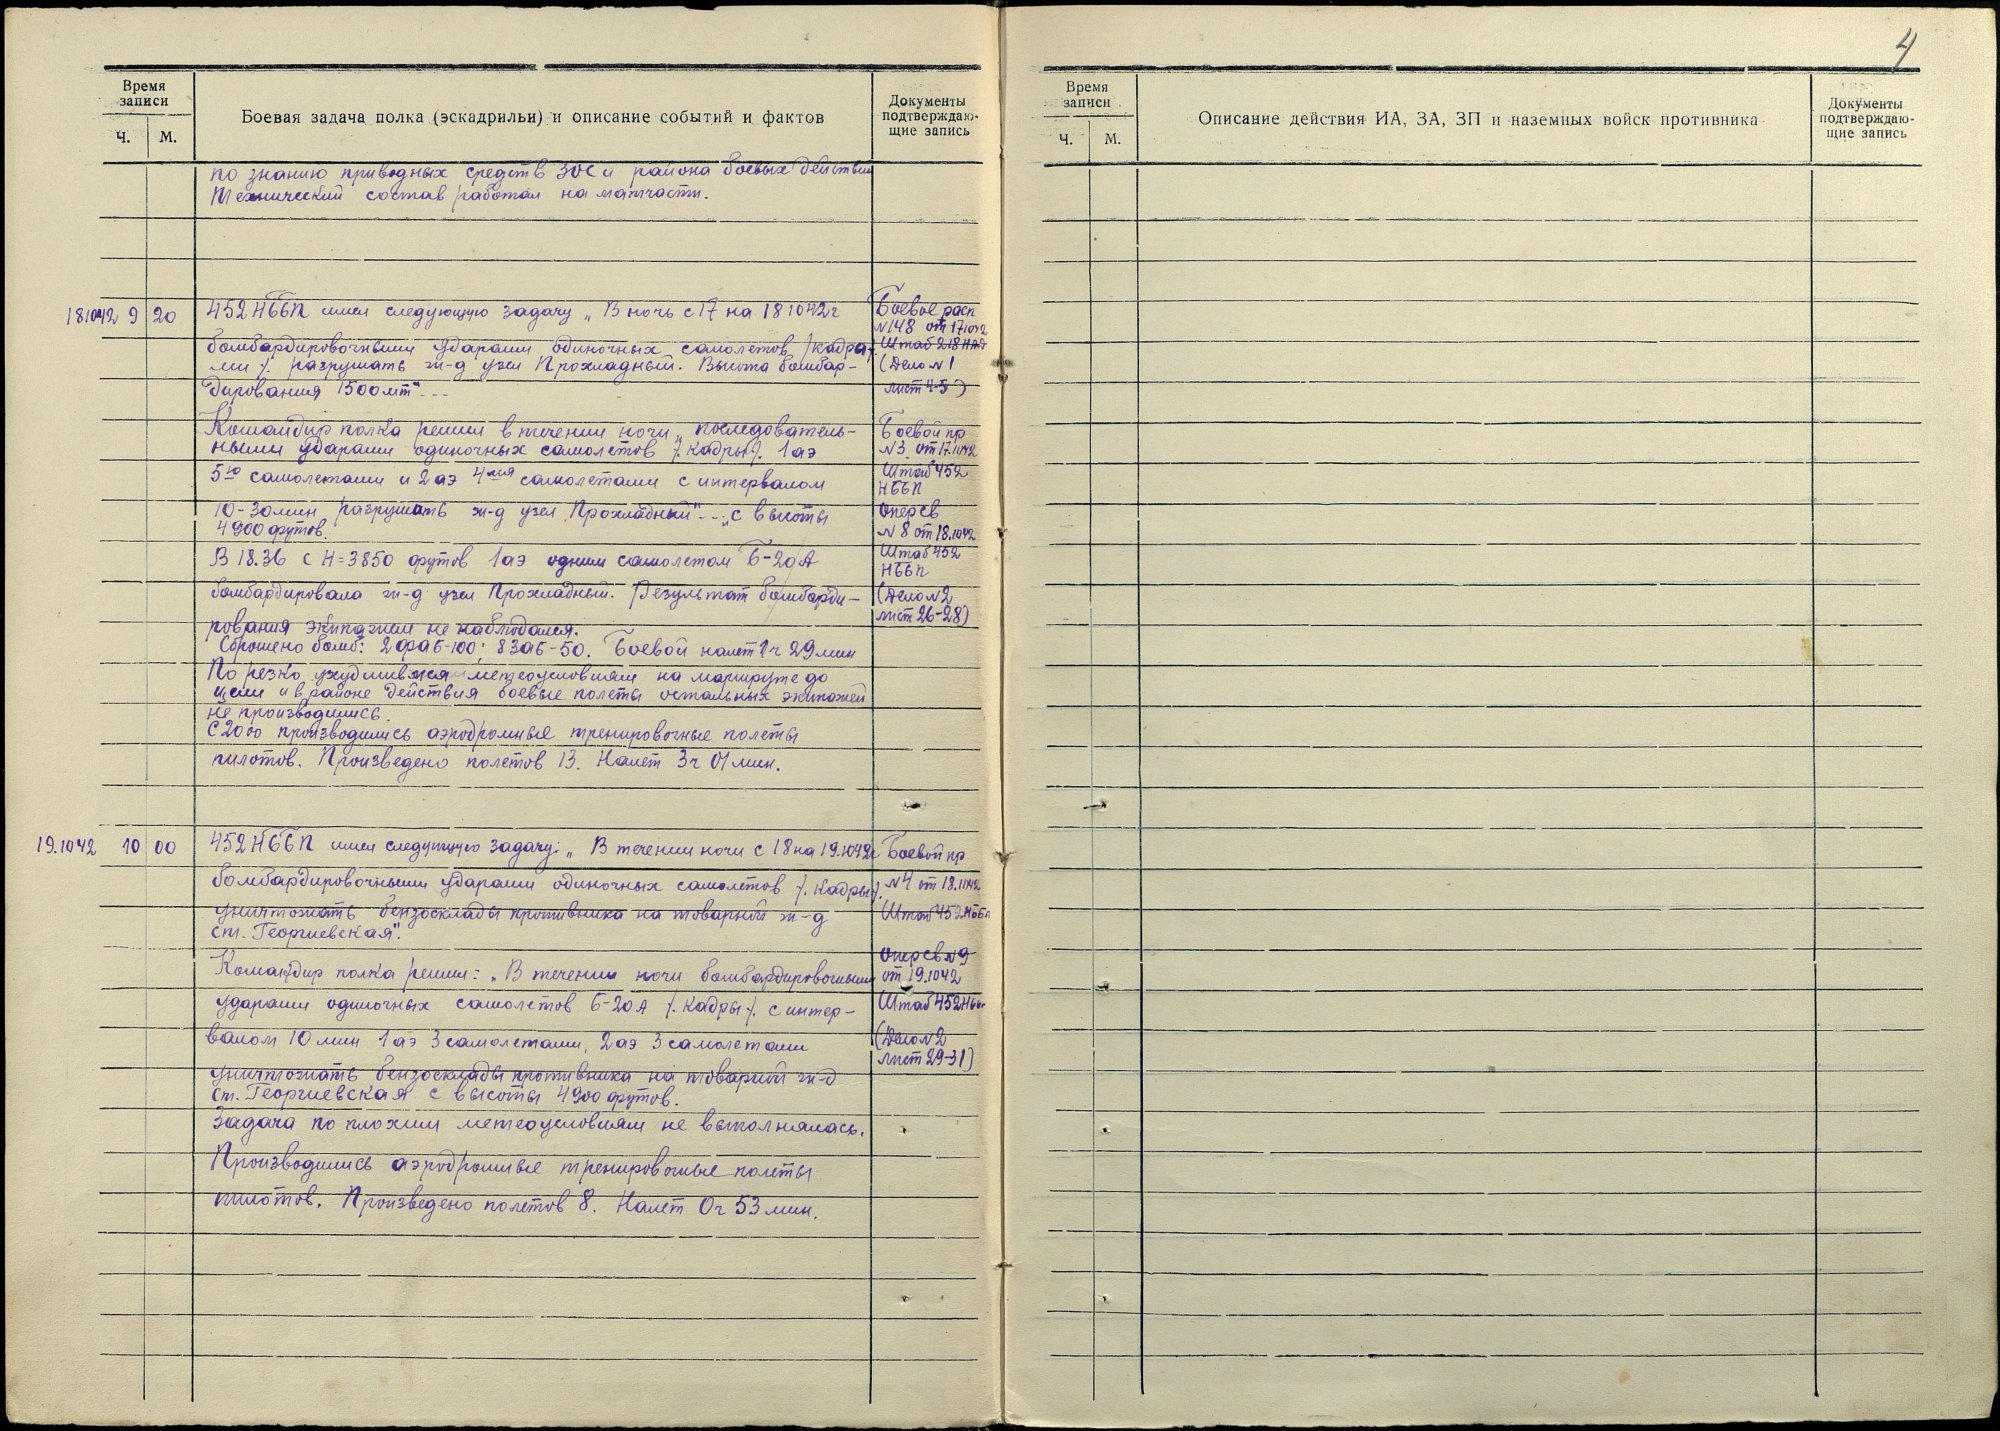 Время записи
Ч.
М.
Боевая задача полка (эскадрильи) и описание событий и фактов
Документы подтверждаю-щие запись
по знанию приводных средств ЗОС и района боевых действий
Технический состав работал на матчасти.
18.10.42 9 20
452 НББП имел следующую задачу „В ночь с 17 на 18 10 42 г
бомбардировочными ударами одиночных самолетов /кадра-
ми/. разрушать ж-д узел Прохладный. Высота бомбар-
дирования 1500 мт"---
Командир полка решил в течении ночи „последователь-
ными ударами одиночных самолетов /.кадры/. 1 аэ
5ю самолетами и 2 аэ 4мя самолетами с интервалом
10-30 мин разрушать ж-д узел „Прохладный"--- „с высоты
4900 футов.
В 18.36 с Н=3850 футов 1 аэ одним самолетом Б-20А
бомбардировала ж-д узел Прохладный. Результат бомбарди-
рования экипажем не наблюдался.
Сброшено бомб: 2 ФАБ-100; 8 ЗАБ-50. Боевой налет 1 ч 29 мин
По резко ухудшившимся метеоусловиям на маршруте до
цели и в районе действия боевые полеты остальных экипажей
не производились.
С 20 00 производились аэродромные тренировочные полеты
пилотов. Произведено полетов 13. Налет 3 ч 01 мин.
Боевое расп
№148 от 17.10.42
Штаб 218 НАД
(Дело №1
лист 4-5)
Боевой пр
№3 от 17.10.42
Штаб 452
НББП
Оперсв
№8 от 18.10.42
Штаб 452
НББП
(Дело №2
лист 26-28)
19.10 42 10 00
452 НББП имел следующую задачу: „В течении ночи с 18 на 19.10.42 г
бомбардировочными ударами одиночных самолетов /.кадры/.
уничтожать бензосклады противника на товарной ж-д
ст. Георгиевская".
Командир полка решил: „В течении ночи бомбардировочными
ударами одиночных самолетов Б-20А /.кадры/. с интер-
валом 10 мин 1 аэ 3 самолетами, 2 аэ 3 самолетами
уничтожать бензосклады противника на товарной ж-д
ст. Георгиевская с высоты 4900 футов.
Задача по плохим метеоусловиям не выполнялась.
Производились аэродромные тренировочные полеты
пилотов. Произведено полетов 8. Налет 0 ч 53 мин.
Боевой пр
№4 от 18.10.42
Штаб 452 НББП
Оперсв №9
от 19.10 42
Штаб 452 НББП
(Дело №2
лист 29-31)
4
Время записи
Ч.
М.
Описание действия ИА, ЗА, ЗП и наземных войск противника
Документы подтверждаю-щие запись